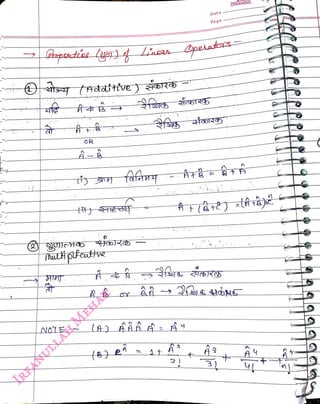 → Properties (गुण) of Linear Operators -
① योज्य (Additive) संकारक -
यदि Â & B̂ → रैखिक संकारक
तो Â + B̂ → रैखिक संकारक
OR
Â - B̂
(i) क्रम विनिमय - Â + B̂ = B̂ + Â
(ii) साहचर्य - Â + (B̂ + Ĉ) = (Â + B̂) + Ĉ
② गुणात्मक संकारक -
Multiplicative
→ माना Â & B̂ → रैखिक संकारक
तो Â B̂ or B̂ Â → रैखिक संकारक
NOTE (A) Â Â Â Â = Â⁴
(B) e^Â = 1 + Â²/2! + Â³/3! + Â⁴/4! + - Âⁿ/n!
IRFANULLAH MEHAR